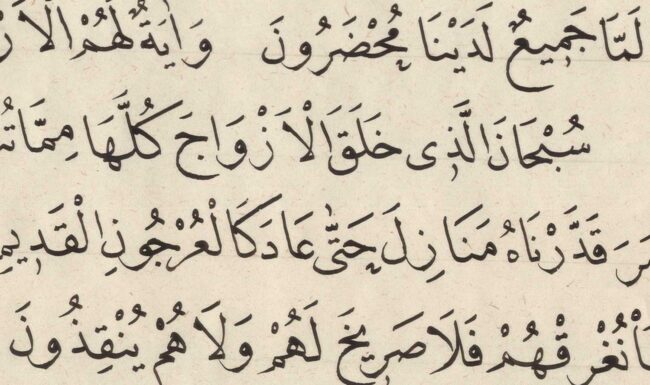 لَمَّا جَمِيعٌ لَدَيْنَا مُحْضَرُونَ وَاٰيَةٌ لَهُمُ الْاَرْ
سُبْحَانَ الَّذِى خَلَقَ الْاَزْوَاجَ كُلَّهَا مِمَّا تُ
قَدَّرْنَاهُ مَنَازِلَ حَتّٰى عَادَ كَالْعُرْجُونِ الْقَدِيمِ
نُغْرِقْهُمْ فَلَا صَرِيخَ لَهُمْ وَلَا هُمْ يُنْقِذُونَ